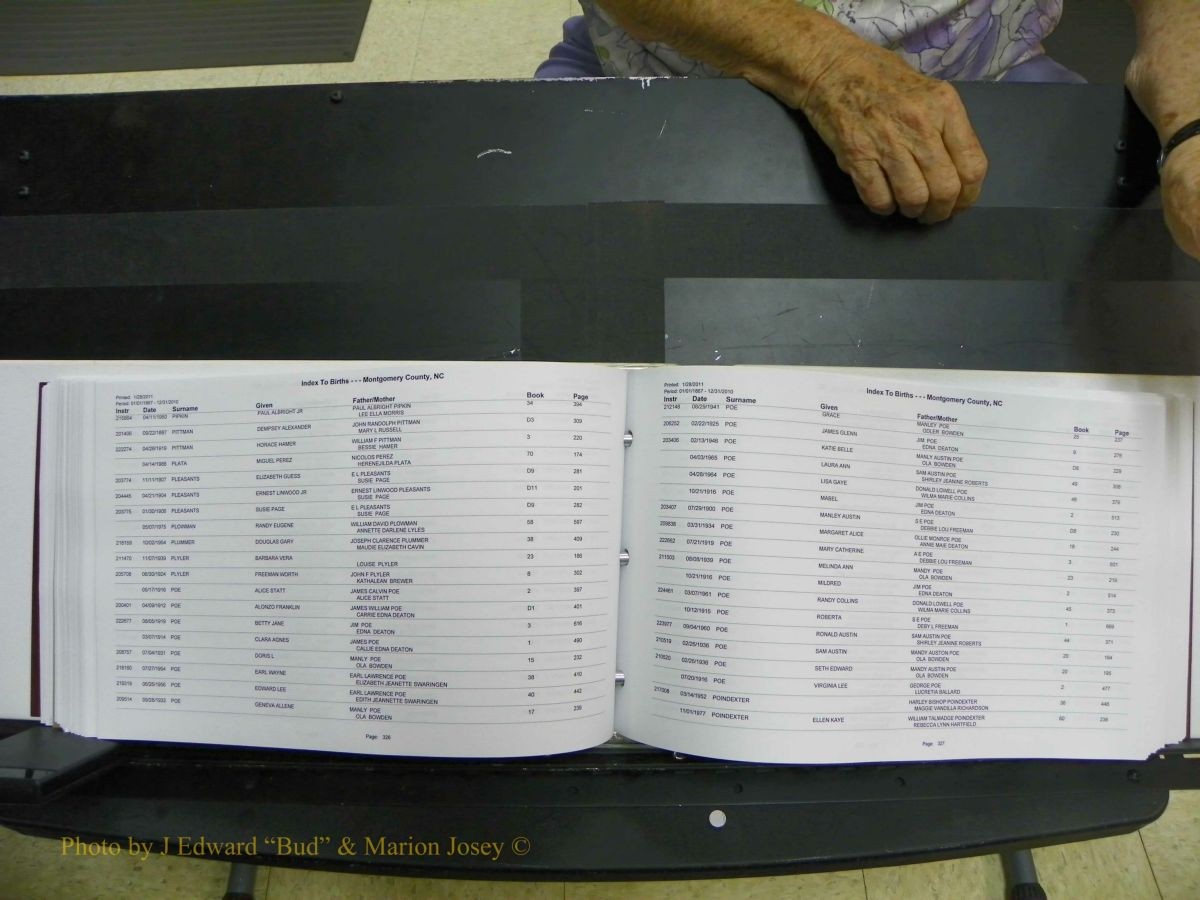 Index To Births - - - Montgomery County, NC
Printed: 1/28/2011
Period: 01/01/1867 - 12/31/2010
Instr Date Surname Given Father/Mother Book Page
215864 04/11/1960 PIPKIN PAUL ALBRIGHT JR PAUL ALBRIGHT PIPKIN 34 394
LES ELLA MORRIS
201406 09/22/1887 PITTMAN DEMPSEY ALEXANDER JOHN RANDOLPH PITTMAN D3 309
MARY L RUSSELL
222274 04/28/1919 PITTMAN HORACE HAMER WILLIAM F PITTMAN 3 220
BESSIE HAMER
04/14/1988 PLATA MIGUEL PEREZ NICOLOS PEREZ 70 174
HERENEJILDA PLATA
203774 11/11/1907 PLEASANTS ELIZABETH GUESS E L PLEASANTS D9 281
SUSIE PAGE
204445 04/21/1904 PLEASANTS ERNEST LINWOOD JR ERNEST LINWOOD PLEASANTS D11 201
SUSIE PAGE
203775 01/30/1900 PLEASANTS SUSIE PAGE E L PLEASANTS D9 282
SUSIE PAGE
05/07/1975 PLOWMAN RANDY EUGENE WILLIAM DAVID PLOWMAN 58 597
ANNETTE DARLENE LYLES
218159 10/02/1954 PLUMMER DOUGLAS GARY JOSEPH CLARENCE PLUMMER 38 409
MAUDIE ELIZABETH CAVIN
211470 11/07/1939 PLYLER BARBARA VERA 23 186
LOUISE PLYLER
205708 08/30/1924 PLYLER FREEMAN WORTH JOHN F PLYLER 8 302
KATHALEAN BREWER
05/17/1916 POE ALICE STATT JAMES CALVIN POE 2 397
ALICE STATT
200401 04/09/1912 POE ALONZO FRANKLIN JAMES WILLIAM POE D1 401
CARRIE EDNA DEATON
222677 06/05/1919 POE BETTY JANE JIM POE 3 616
EDNA DEATON
03/07/1914 POE CLARA AGNES JAMES POE 1 490
CALLIE EDNA DEATON
208757 07/04/1931 POE DORIS L MANLY POE 15 232
OLA BOWDEN
218160 07/27/1954 POE EARL WAYNE EARL LAWRENCE POE 38 410
ELIZABETH JEANETTE SWARINGEN
219319 06/26/1956 POE EDWARD LEE EARL LAWRENCE POE 40 442
EDITH JEANETTE SWARINGEN
209514 09/08/1933 POE GENEVA ALLENE MANLY POE 17 239
OLA BOWDEN
Page: 326
Printed: 1/28/2011
Period: 01/01/1867 - 12/31/2010
Index To Births - - - Montgomery County, NC
Instr Date Surname Given Father/Mother Book Page
212148 08/29/1941 POE GRACE MANLEY POE 25 237
ODLER BOWDEN
206252 02/22/1925 POE JAMES GLENN JIM POE 9 276
EDNA DEATON
203406 02/13/1948 POE KATIE BELLE MANLY AUSTIN POE D8 229
OLA BOWDEN
04/03/1965 POE LAURA ANN SAM AUSTIN POE 49 308
SHIRLEY JEANINE ROBERTS
04/28/1964 POE LISA GAYE DONALD LOWELL POE 48 379
WILMA MARIE COLLINS
10/21/1916 POE MABEL JIM POE 2 513
EDNA DEATON
203407 07/29/1900 POE MANLEY AUSTIN S E POE D8 230
DEBBIE LOU FREEMAN
209838 03/31/1934 POE MARGARET ALICE OLLIE MONROE POE 18 244
ANNIE MAIE DEATON
222662 07/21/1919 POE MARY CATHERINE A E POE 3 601
DEBBIE LOU FREEMAN
211503 08/08/1939 POE MELINDA ANN MANDY POE 23 219
OLA BOWDEN
10/21/1916 POE MILDRED JIM POE 2 514
EDNA DEATON
224461 03/07/1961 POE RANDY COLLINS DONALD LOWELL POE 45 373
WILMA MARIE COLLINS
10/12/1915 POE ROBERTA S E POE 1 669
DEBY L FREEMAN
223977 09/04/1960 POE RONALD AUSTIN SAM AUSTIN POE 44 371
SHIRLEY JEANINE ROBERTS
210519 02/26/1936 POE SAM AUSTIN MANDY AUSTON POE 20 194
OLA BOWDEN
210520 02/26/1936 POE SETH EDWARD MANDY AUSTIN POE 20 195
OLA BOWDEN
07/20/1916 POE VIRGINIA LEE GEORGE POE 2 477
LUCRETIA BALLARD
217008 03/14/1952 POINDEXTER HARLEY BISHOP POINDEXTER 36 448
MAGGIE VANDILLA RICHARDSON
11/01/1977 POINDEXTER ELLEN KAYE WILLIAM TALMADGE POINDEXTER 60 236
REBECCA LYNN HARTFIELD
Page: 327
Photo by J Edward “Bud” & Marion Josey ©